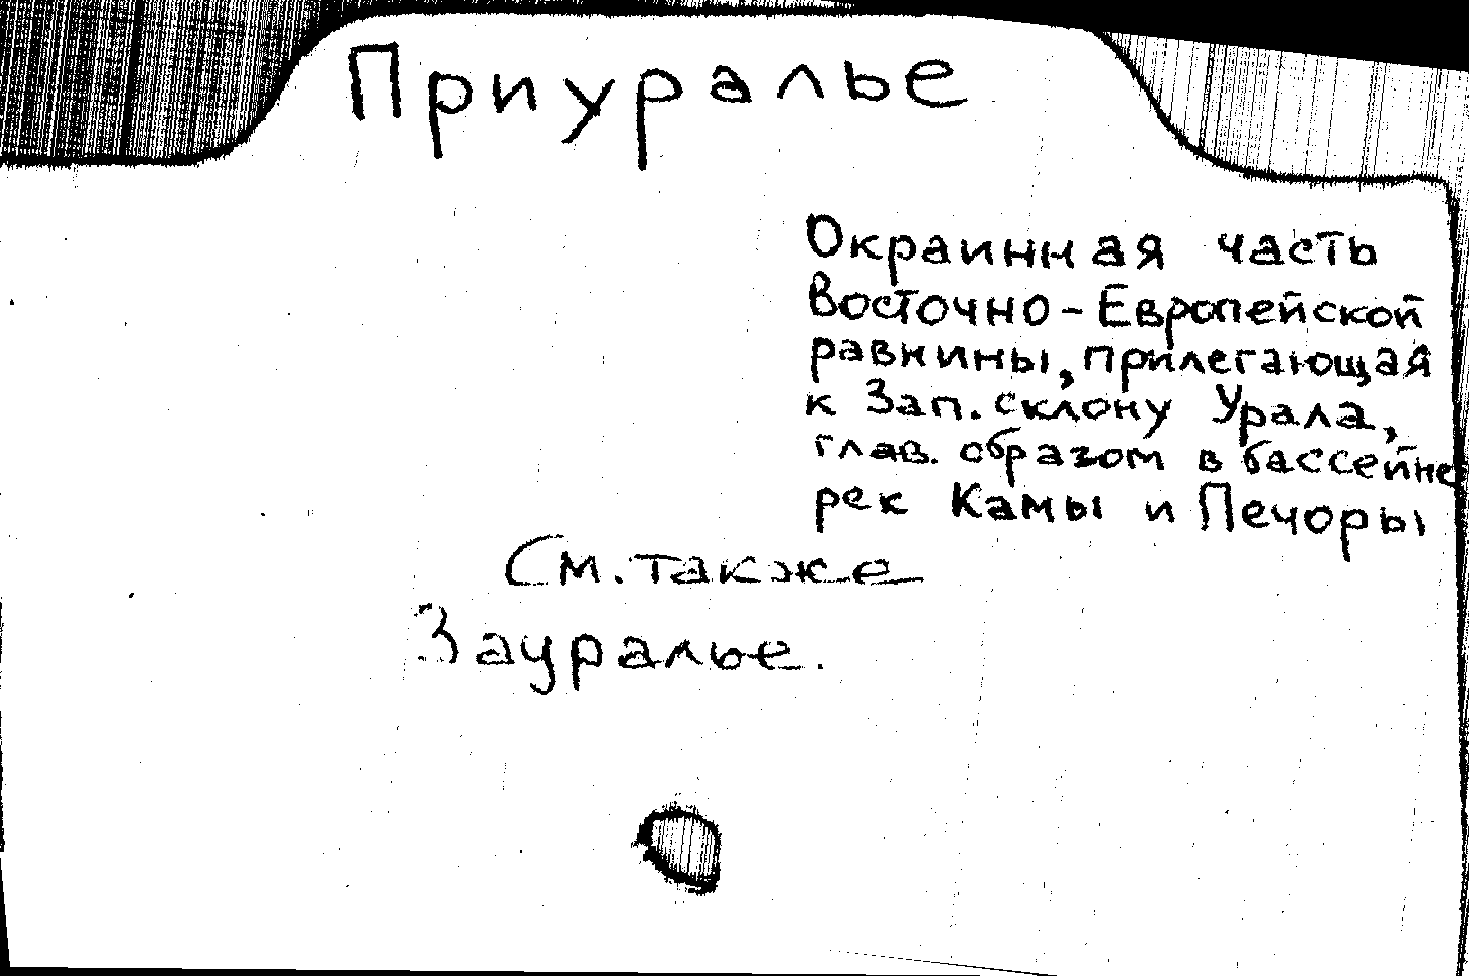 Приуралье
Окраинная часть
Восточно-Европейской
равнины, прилегающая
к Зап. склону Урала,
глав. образом в бассейне
рек Камы и Печоры
См. также
Зауралье.